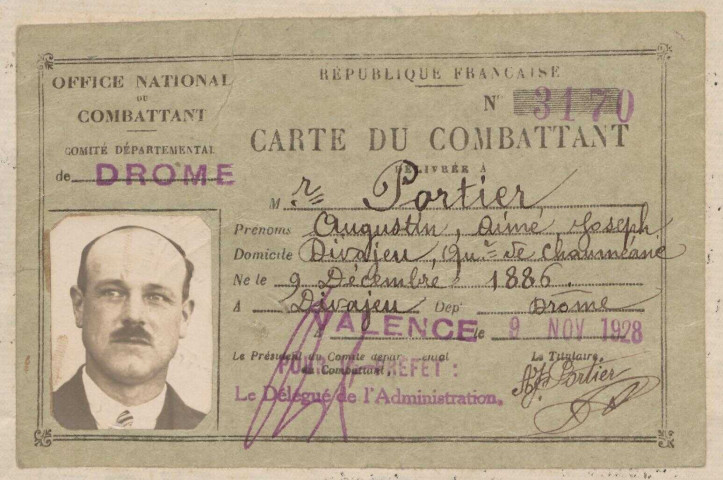 OFFICE NATIONAL
DU
COMBATTANT
COMITÉ DÉPARTEMENTAL
de DROME
RÉPUBLIQUE FRANÇAISE
N° 3170
CARTE DU COMBATTANT
DÉLIVRÉE A
M. r Portier
Prénoms Augustin, Aimé, Joseph
Domicile Divajeu, qu.er de Chauméane
Né le 9 Décembre 1886.
A Divajeu Dép.t Drôme
A VALENCE le 9 NOV 1928
Le Président du Comité départemental
du Combattant,
POUR LE PREFET :
Le Délégué de l'Administration,
Le Titulaire,
Portier